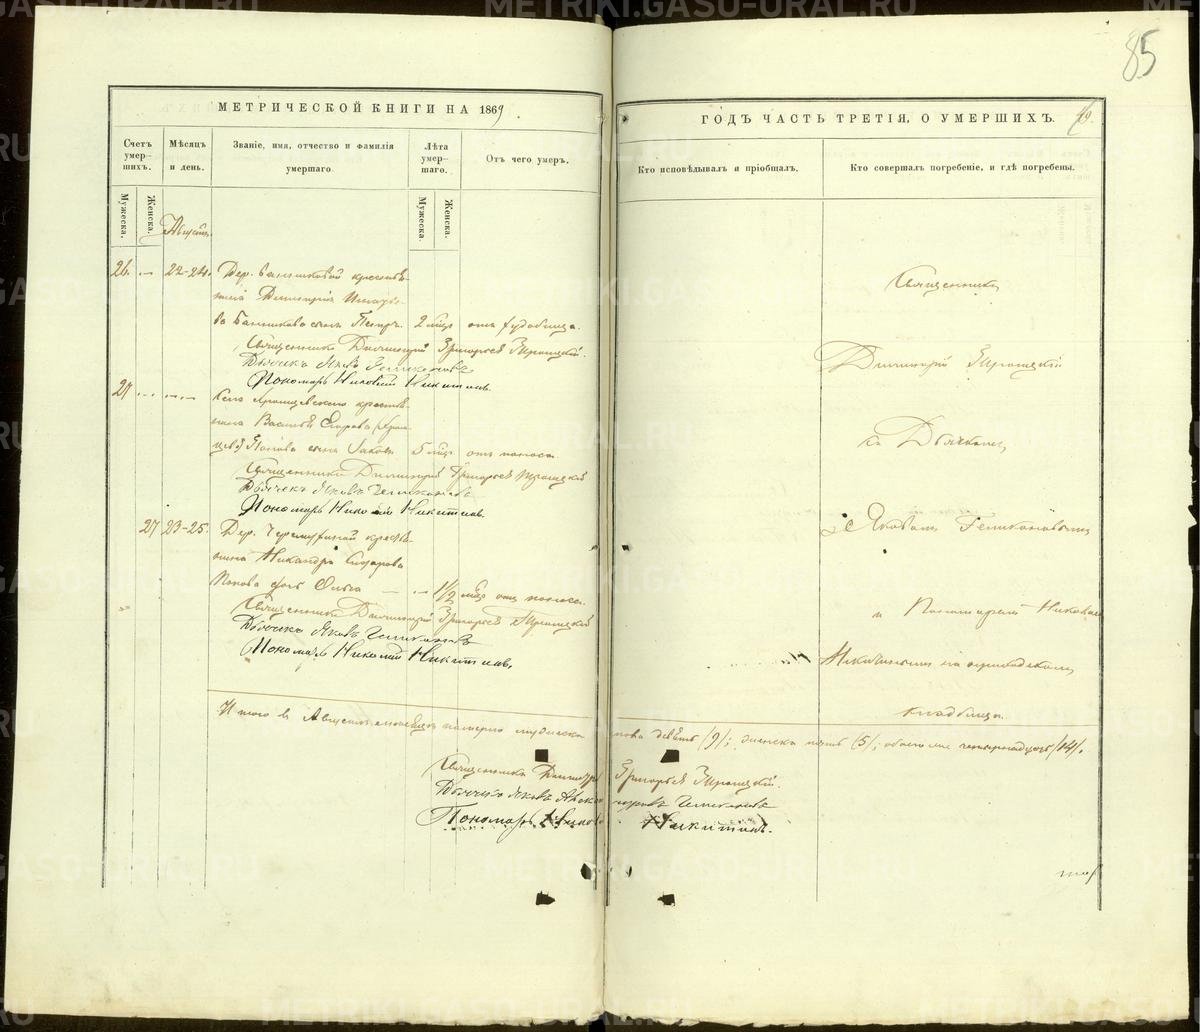 85
МЕТРИЧЕСКОЙ КНИГИ НА 1869
ГОДЪ ЧАСТЬ ТРЕТІЯ, О УМЕРШИХЪ.
Счетъ умер-
шихъ.
Мѣсяцъ
и день.
Званіе, имя, отчество и фамилія
умершаго.
Лѣта
умер-
шаго.
Отъ чего умеръ.
Кто исповѣдывалъ и пріобщалъ.
Кто совершалъ погребеніе, и гдѣ погребены.
Мужеска.
Женска.
Мужеска.
Женска.
Августъ.
26. 22-24. Дер. крестья-
нина Димитрія
сынъ Петръ. 2 мѣс. отъ
Священникъ Димитрій Григорьевъ Троицкій.
Дьячекъ Яковъ Геликоновъ
Пономарь Николай Никитинъ.
27 Села крестья-
нина Василья Егорова
Попова сынъ Іаковъ 5 мѣс. отъ поноса.
Священникъ Димитрій Григорьевъ Троицкій
Дьячекъ Яковъ Геликоновъ
Пономарь Николай Никитинъ.
27 23-25. Дер. крестья-
нина Никандра
Попова дочь Ольга 1 1/2 мѣс. отъ поноса.
Священникъ Димитрій Григорьевъ Троицкій
Дьячекъ Яковъ Геликоновъ
Пономарь Николай Никитинъ.
Священникъ
Димитрій Троицкій
съ Дьячкомъ
Яковомъ Геликоновымъ
и Пономаремъ Николаемъ
Никитинымъ на приходскомъ
кладбищѣ.
Итого въ Августѣ мѣсяцѣ померло мужеска пола девять /9/; женска пять /5/; обоего же четырнадцать /14/.
Священникъ Димитрій Григорьевъ Троицкій.
Дьячекъ Яковъ Геликоновъ
Пономарь Николай Никитинъ.
METRIKI.GASO-URAL.RU